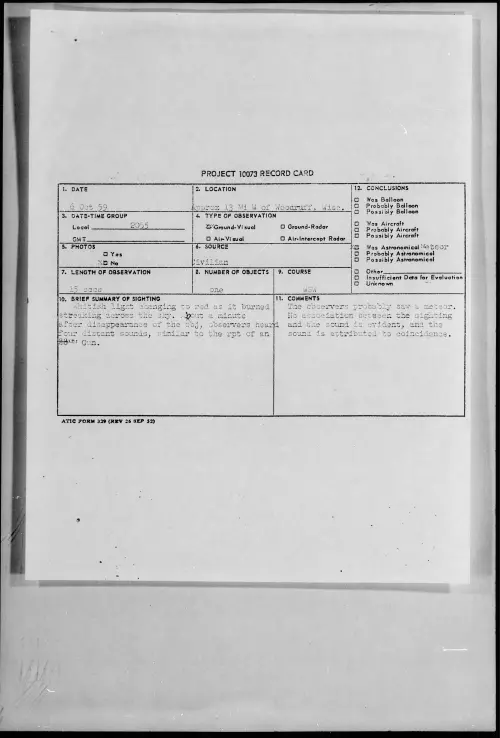 PROJECT 10073 RECORD CARD
1. DATE
6 Oct 59
2. LOCATION
Approx 13 Mi W of Woodruff, Wisc.
12. CONCLUSIONS
Was Balloon
Probably Balloon
Possibly Balloon
Was Aircraft
Probably Aircraft
Possibly Aircraft
Was Astronomical Meteor
Probably Astronomical
Possibly Astronomical
Other
Insufficient Data for Evaluation
Unknown
3. DATE-TIME GROUP
Local 2055
GMT
4. TYPE OF OBSERVATION
Ground-Visual Ground-Radar
Air-Visual Air-Intercept Radar
5. PHOTOS
Yes
No
6. SOURCE
Civilian
7. LENGTH OF OBSERVATION
15 secs
8. NUMBER OF OBJECTS
one
9. COURSE
WSW
10. BRIEF SUMMARY OF SIGHTING
Whitish light changing to red as it burned
streaking across the sky. a minute
after disappearance of the obj, observers heard
four distant sounds, similar to the rpt of an
Gun.
11. COMMENTS
The observers probably saw a meteor.
No association between the sighting
and the sound is evident, and the
sound is attributed to coincidence.
ATIC FORM 329 (REV 26 SEP 52)